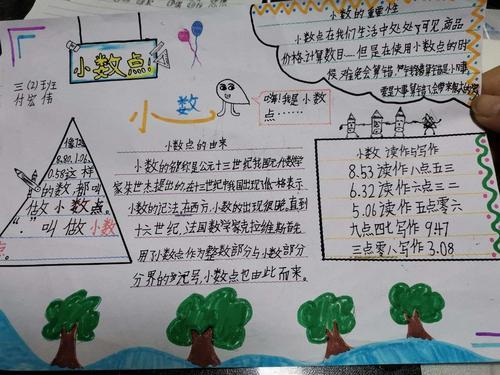 小数的重要性
小数点在我们生活中处处可见,商品
价格,计算数目……但是在使用小数点的时
小数点!
三(2)王班
付宏伟
小数
嗨!我是小数
点……
像
8.80、1.06、
0.58这样
的数,都叫
做小数点。
“.”叫做小数
点。
小数点的由来
小数的名称是公元十三世纪我国元代数学
家朱世杰提出的,在十三世纪中我国出现了低一格表示
小数的记法,在西方,小数的出现很晚,直到
十六世纪,法国数学家克拉维斯首先
用了小数点作为整数部分与小数部分
分界的号,小数点也由此而来。
小数读作与写作
8.53读作八点五三
6.32读作六点三二
5.06读作五点零六
九点四七写作9.47
三点零八写作3.08